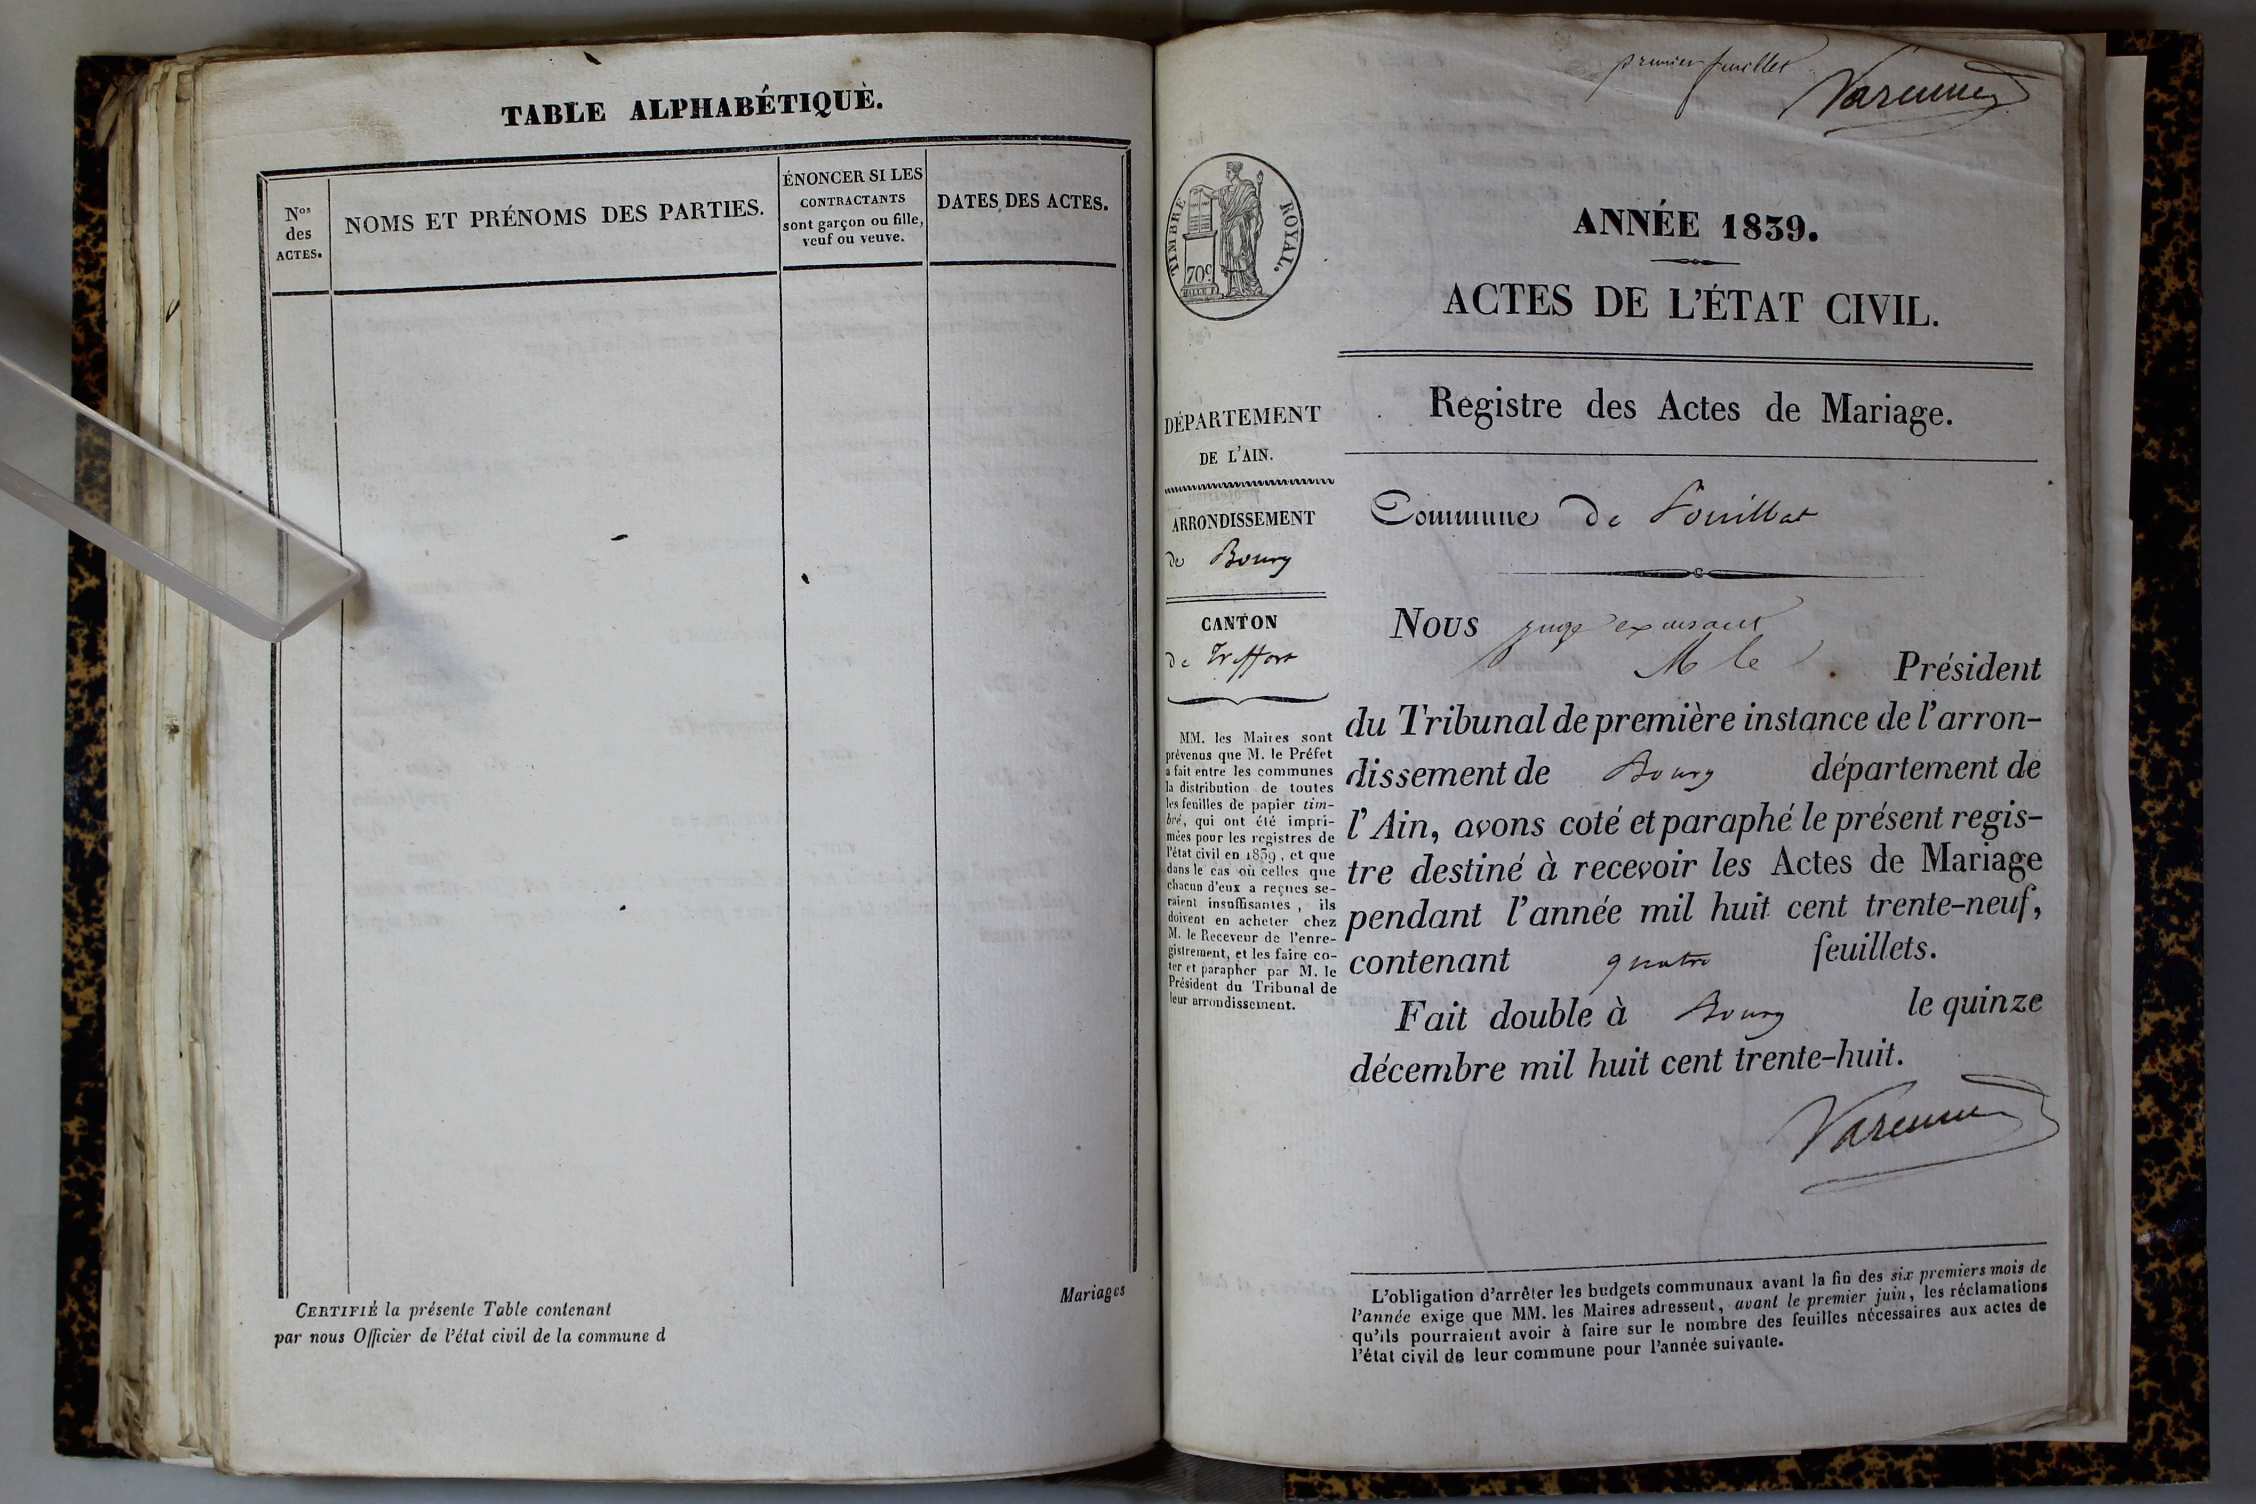 TABLE ALPHABÉTIQUE.
Nos
des
ACTES.
NOMS ET PRÉNOMS DES PARTIES.
ÉNONCER SI LES
CONTRACTANTS
sont garçon ou fille,
veuf ou veuve.
DATES DES ACTES.
Mariages
CERTIFIÉ la présente Table contenant
par nous Officier de l'état civil de la commune d
premier feuillet
Varenne
TIMBRE ROYAL.
70c
ANNÉE 1839.
ACTES DE L'ÉTAT CIVIL.
Registre des Actes de Mariage.
DÉPARTEMENT
DE L'AIN.
ARRONDISSEMENT
de Bourg
CANTON
de Treffort
MM. les Maires sont
prévenus que M. le Préfet
a fait entre les communes
la distribution de toutes
les feuilles de papier tim-
bré, qui ont été impri-
mées pour les registres de
l'état civil en 1839, et que
dans le cas où celles que
chacun d'eux a reçues se-
raient insuffisantes, ils
doivent en acheter chez
M. le Receveur de l'enre-
gistrement, et les faire co-
ter et parapher par M. le
Président du Tribunal de
leur arrondissement.
Commune de Pouillat
Nous juge exerçant
M le Président
du Tribunal de première instance de l'arron-
dissement de Bourg département de
l'Ain, avons coté et paraphé le présent regis-
tre destiné à recevoir les Actes de Mariage
pendant l'année mil huit cent trente-neuf,
contenant quatre feuillets.
Fait double à Bourg le quinze
décembre mil huit cent trente-huit.
Varenne
L'obligation d'arrêter les budgets communaux avant la fin des six premiers mois de
l'année exige que MM. les Maires adressent, avant le premier juin, les réclamations
qu'ils pourraient avoir à faire sur le nombre des feuilles nécessaires aux actes de
l'état civil de leur commune pour l'année suivante.